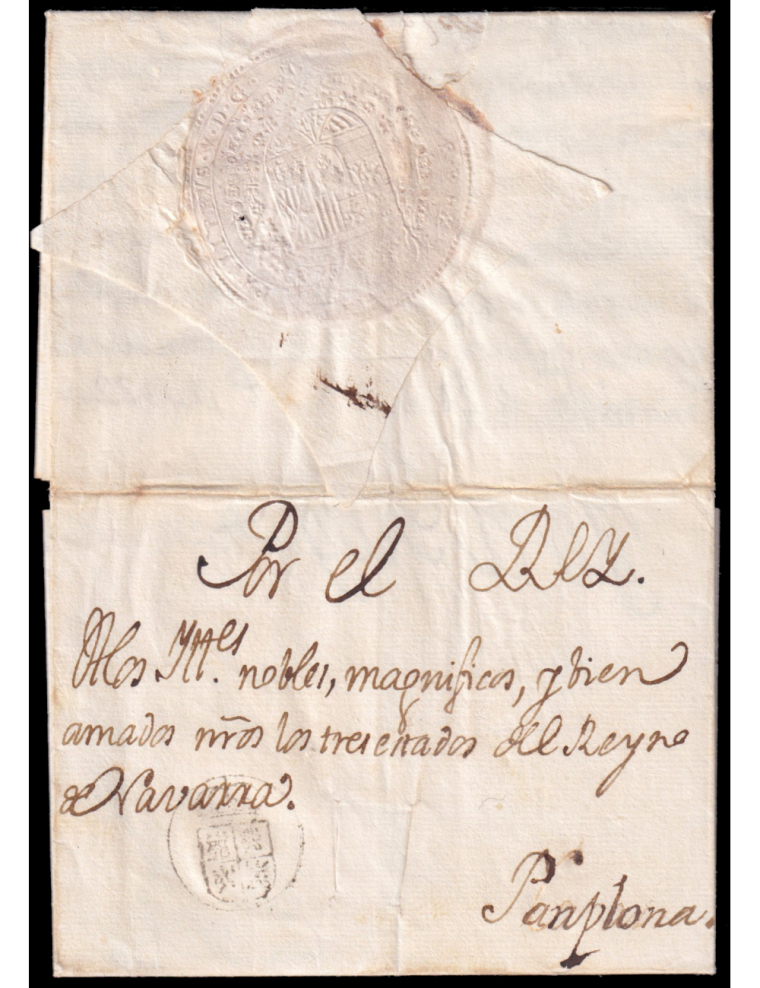 V · D · G ·
Por el Rey.
A los Ill.es nobles, magnificos, y bien
amados nrõs los tres estados del Reyno
de Navarra.
Panplona.